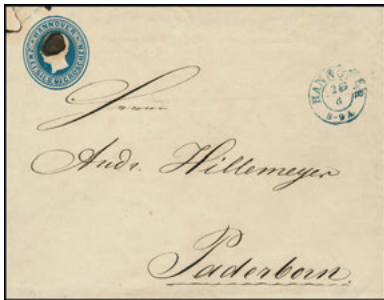 HANNOVER
ZWEI SILBERGROSCHEN
HANNOVER
28
6
8-9A
Herrn
Andr. Hillemeyer
Paderborn.